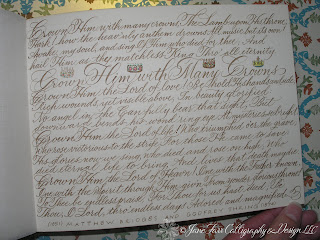 Crown Him with many crowns, The Lamb upon His throne,
Hark! how the heav'nly anthem drowns All music but its own!
Awake, my soul, and sing Of Him who died for thee, And
hail Him as thy matchless King Thro' all eternity.
Crown Him with Many Crowns
Crown Him, the Lord of love! Behold His hands and side,
Rich wounds, yet visible above, In beauty glorified.
No angel in the sky Can fully bear that sight, But
downward bends his wond'ring eye At mysteries so bright.
Crown Him, the Lord of life! Who triumphed o'er the grave,
Who rose victorious to the strife For those He came to save.
His glories now we sing, Who died and rose on high, Who
died eternal life to bring And lives that death may die.
Crown Him, the Lord of Heav'n! One with the Father known,
One with the Spirit through Him given From yonder glorious throne.
To Thee be endless praise, For Thou for us hast died, Be
Thou, O Lord, thro' endless days Adored and magnified.
MATTHEW BRIDGES AND GODFREY
© Jane Farr Calligraphy & Design LLC